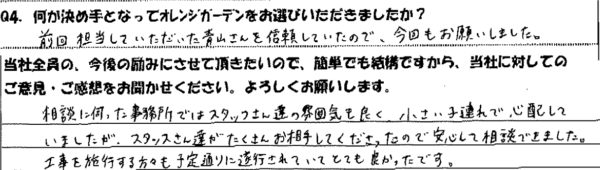 Q4. 何が決め手となってオレンジガーデンをお選びいただきましたか？
前回担当していただいた青山さんを信頼していたので、今回もお願いしました。
当社全員の、今後の励みにさせて頂きたいので、簡単でも結構ですから、当社に対しての
ご意見・ご感想をお聞かせください。よろしくお願いします。
相談に伺った事務所ではスタッフさん達の雰囲気も良く、小さい子連れで心配して
いましたが、スタッフさん達がたくさんお相手してくださったので安心して相談できました。
工事を施行する方々も予定通りに遂行されていてとても良かったです。